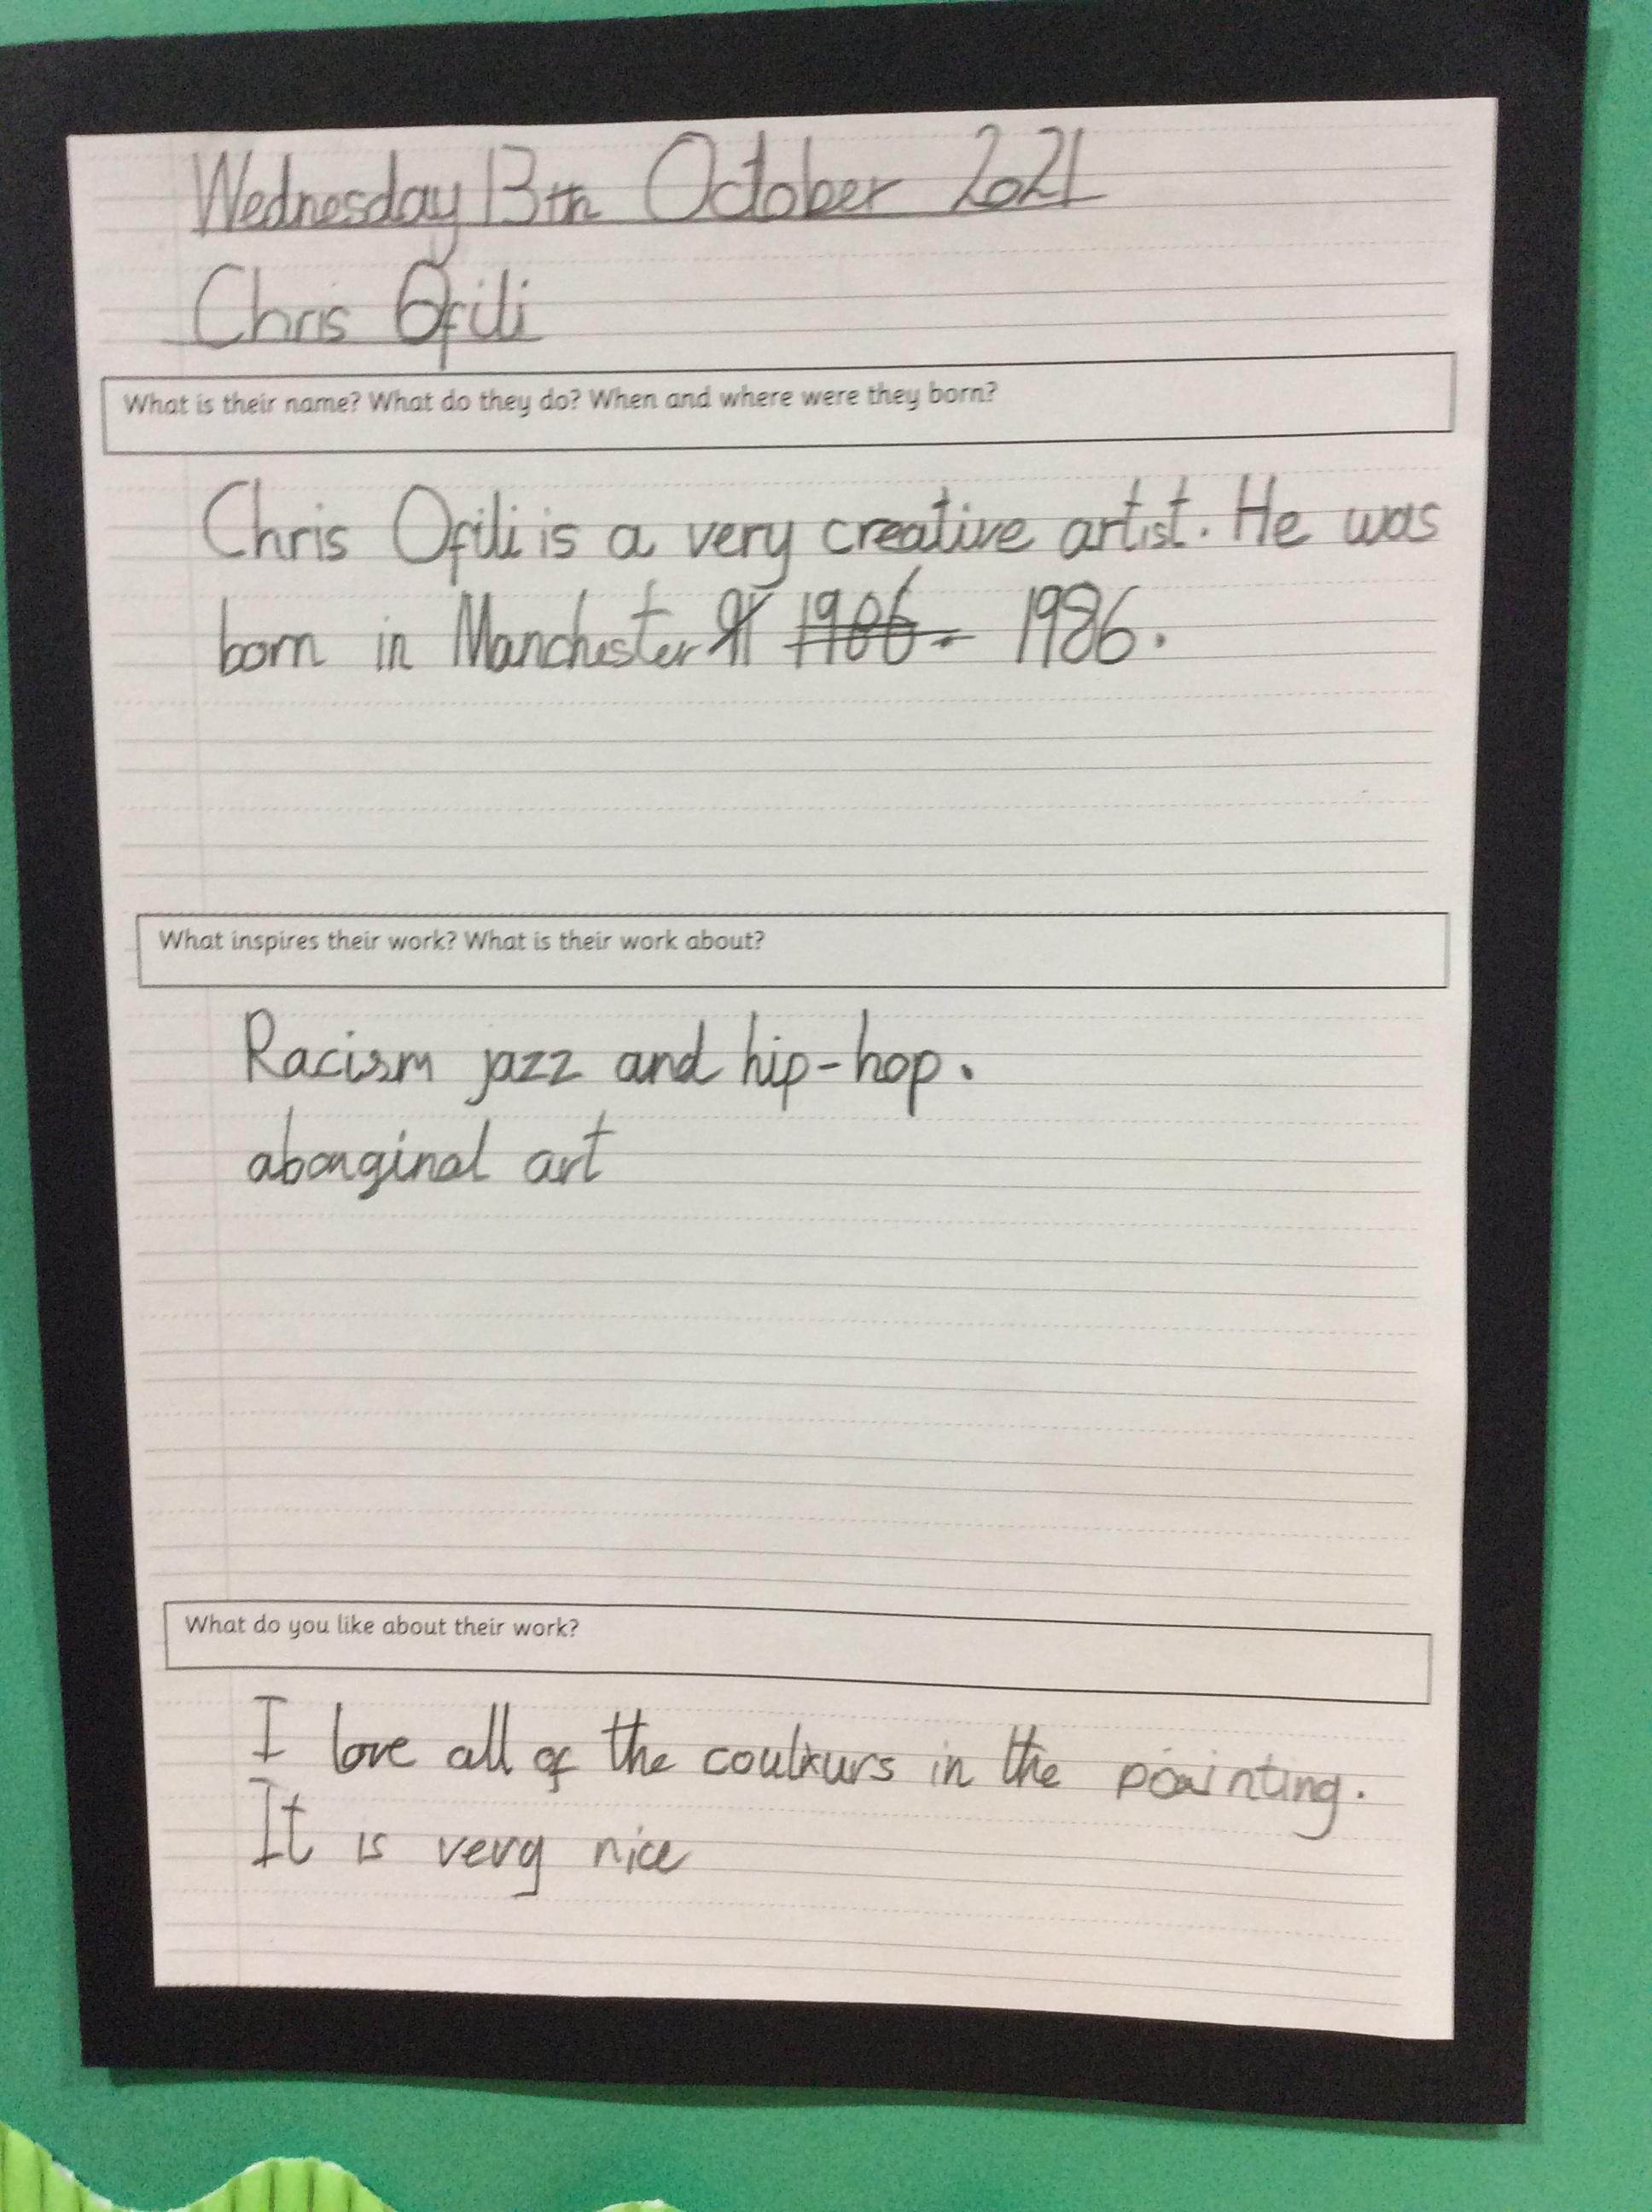 Wednesday 13th October 2021
Chris Ofili
What is their name? What do they do? When and where were they born?
Chris Ofili is a very creative artist. He was
born in Manchester 1986.
What inspires their work? What is their work about?
Racism jazz and hip-hop.
aboriginal art
What do you like about their work?
I love all of the in the painting.
It is very nice